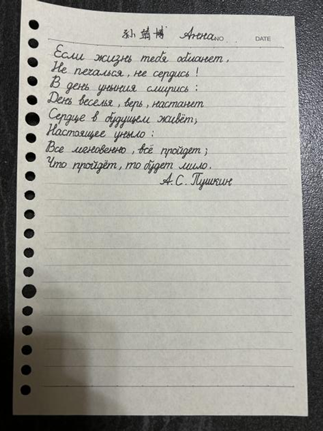 孙皓博 Анна NO DATE
Если жизнь тебя обманет,
Не печалься, не сердись!
В день уныния смирись:
День веселья, верь, настанет
Сердце в будущем живёт;
Настоящее уныло:
Все мгновенно, всё пройдет;
Что пройдёт, то будет мило.
А.С. Пушкин